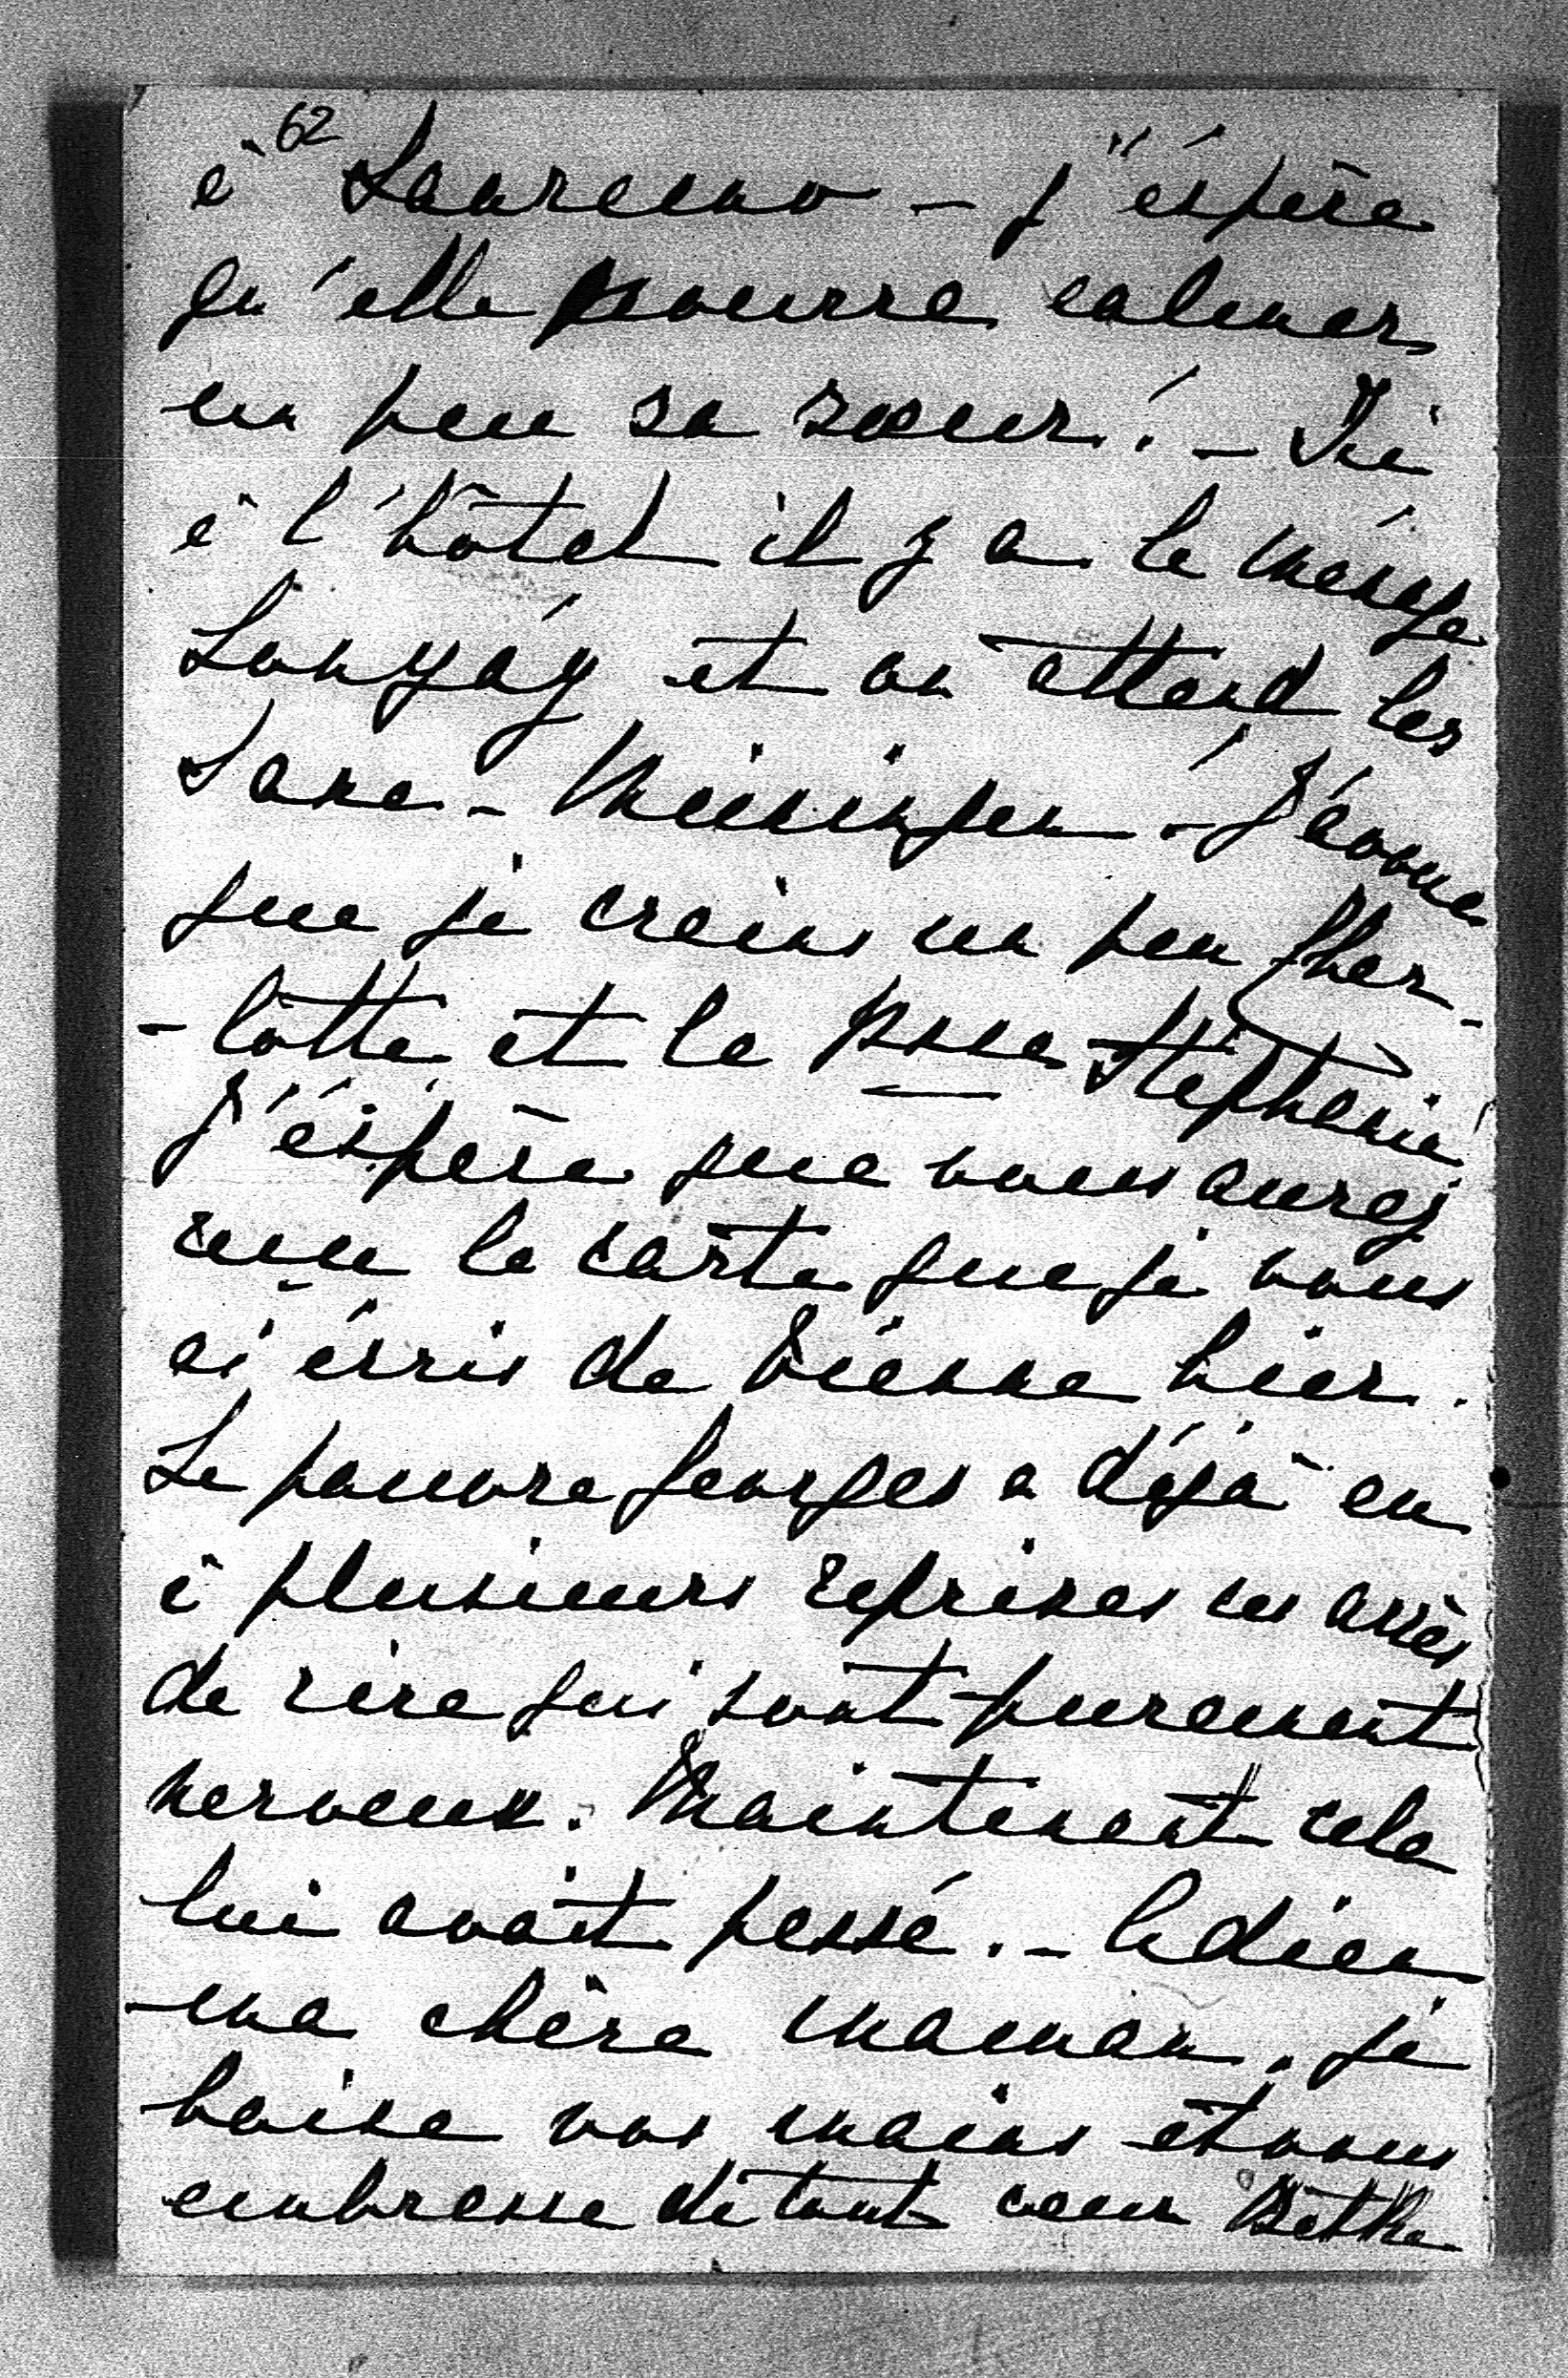 62
à Laurenno - j'éspère
qu'elle pourra calmer
un peu sa sœur! - Ici
à l'hôtel il y a le ménage
Lonyáy et on attend les
Saxe-Meiningen - J'avoue
que je crains un peu Char-
-lotte et la pssa Stéphanie
J'éspère que vous aurez
reçu la carte que je vous
ai écris de Vienne hier.
Le pauvre Georges a déjà eu
à plusieurs reprises ces accès
de rire qui sont purement
nerveux. Maintenant cela
lui avait passé. - Adieu
ma chère maman. je
baise vos mains et vous
embrasse de tout cœur